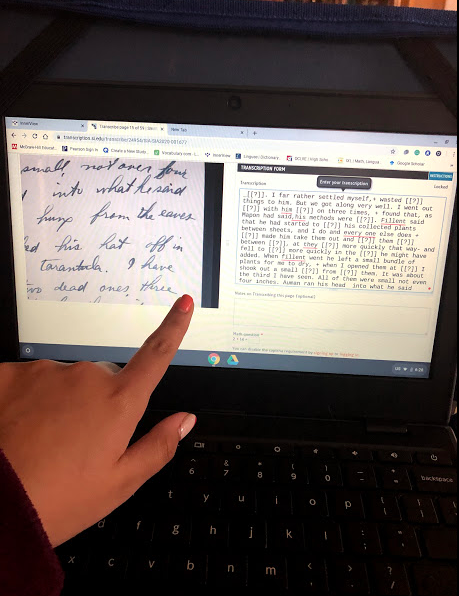 SmartView
Transcribe page 15 of 59
New Tab
transcription.si.edu/transcribe/
Pearson Sign In
Create a New Study
Vocabulary.com
SmartView
Google Scholar
small, not over four
into what he said
hung from the eaves
his hat off in
tarantula. I have
dead ones three
TRANSCRIPTION FORM
INSTRUCTIONS
Transcription
Enter your transcription
Locked
[[?]]. I far rather settled myself,+ wasted [[?]]
things to him. But we got along very well. I went out
[[?]] with him [[?]] on three times, + found that, as
Mapon had said, his methods were [[?]]. Fillent said
that he had started to [[?]] his collected plants
between sheets, and I do and every one else does +
[[?]] made him take them out and [[?]] them [[?]]
between [[?]], at they [[?]] more quickly that way- and
fell to [[?]] more quickly in the [[?]] he might have
added. When fillent went he left a small bundle of
plants for me to dry, + when I opened them at [[?]] I
shook out a small [[?]] from [[?]] them. It was about
the third I have seen. All of them were small not even
four inches. Auman ran his head into what he said
Notes on Transcribing this page (optional)
Math question *
US
6:26
backspace
^
6
&
7
*
8
(
9
)
0
t
y
u
i
o
p
d
f
g
h
j
k
l
x
c
v
b
n
m